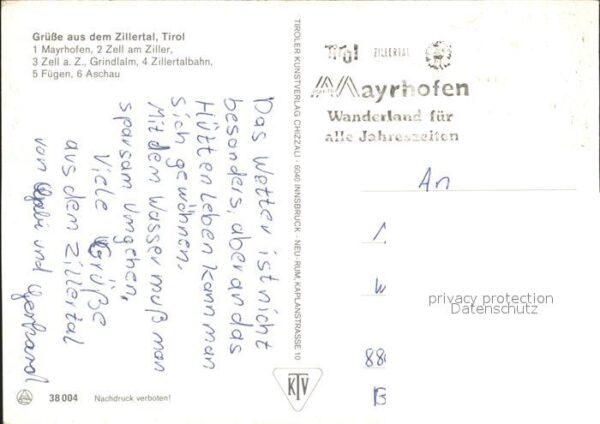 Grüße aus dem Zillertal, Tirol
1 Mayrhofen, 2 Zell am Ziller,
3 Zell a. Z., Grindlalm, 4 Zillertalbahn,
5 Fügen, 6 Aschau
Das Wetter ist nicht
besonders, aber an das
Hüttenleben kann man
sich gewöhnen.
Mit dem Wasser muß man
sparsam umgehen,
Viele Grüße
aus dem Zillertal
von Gabi und Gerhard
38 004 Nachdruck verboten!
TIROLER KUNSTVERLAG CHIZZALI · 6040 INNSBRUCK - NEU-RUM, KAPLANSTRASSE 10
KTV
Tirol ZILLERTAL
Mayrhofen
Wanderland für
alle Jahreszeiten
An
1
W
privacy protection
Datenschutz
88
B